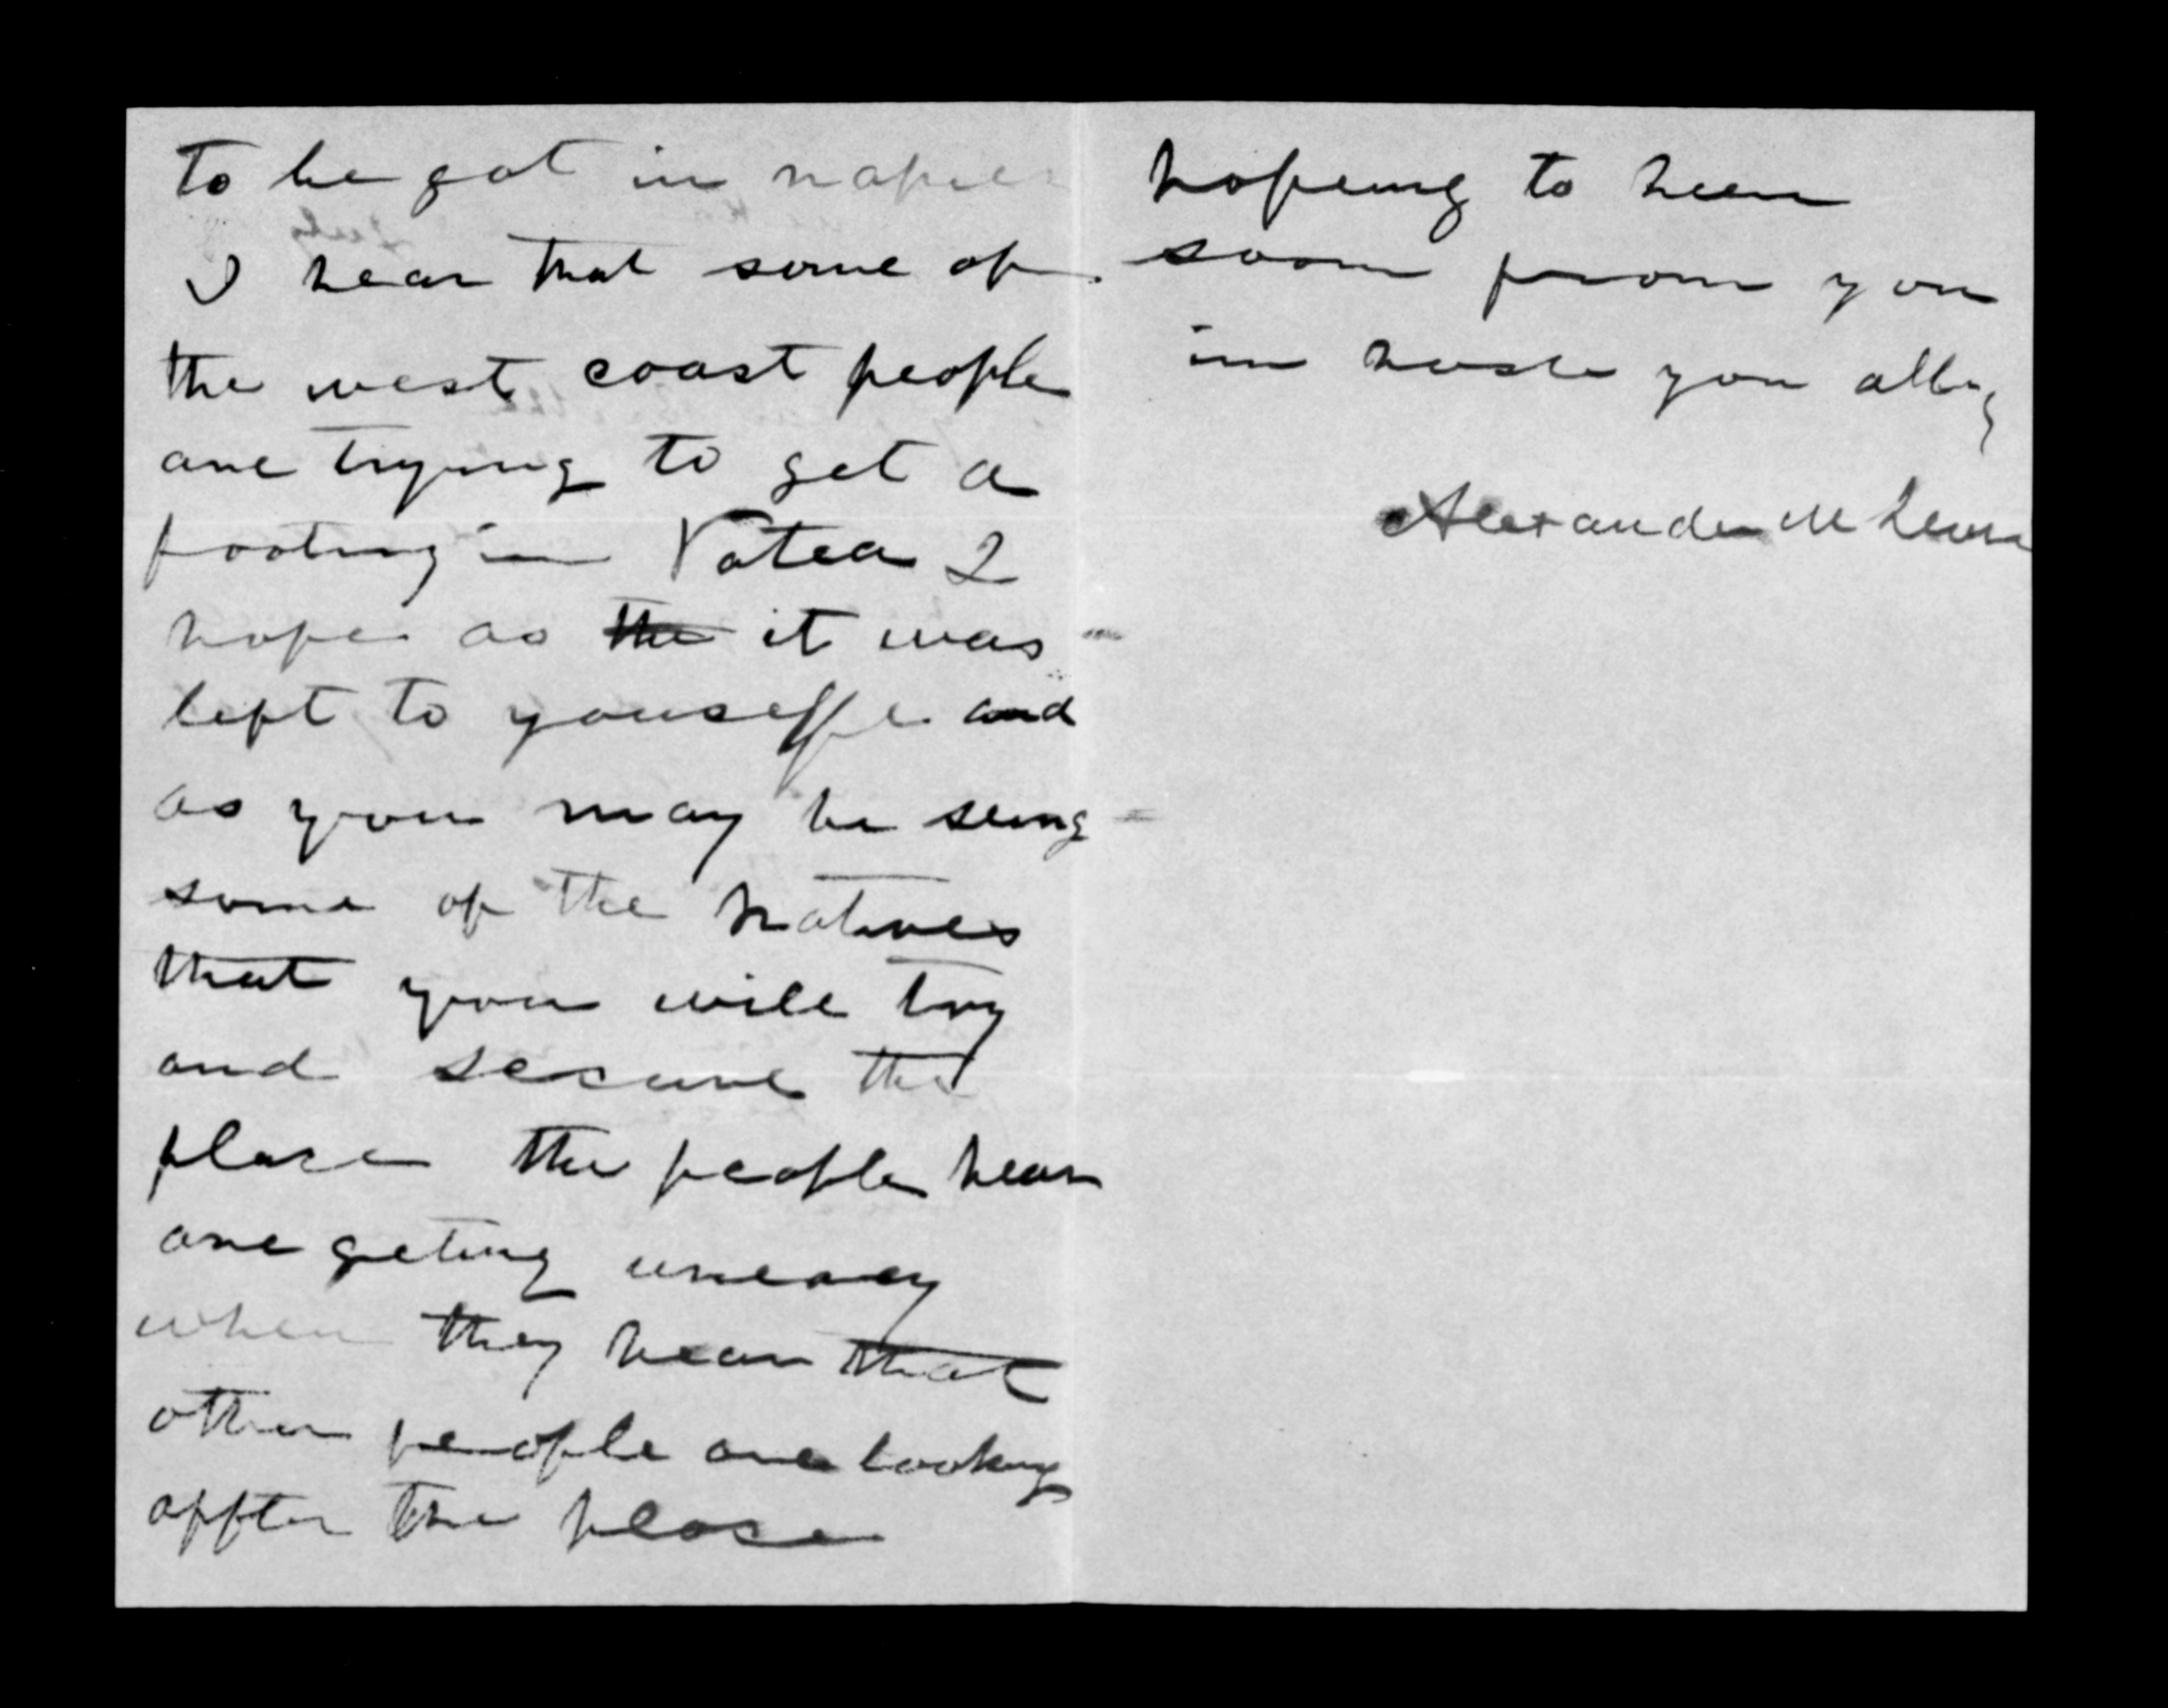 to be got in napier
I hear that some of
the west coast people
are trying to get a
footing in Patea I
hope as the it was
left to youselffe and
as you may be seing
some of the natives
that you will try
and secure the
place the people hear
are geting uneasy
when they hear that
other people are looking
affter the place
hopeing to hear
soon from you
in haste you
Alexander M Lean